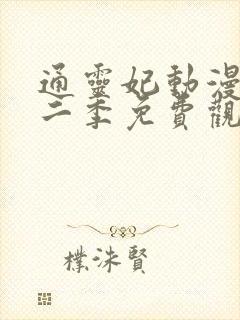 通靈妃動漫
二季免費觀
樸洙賢